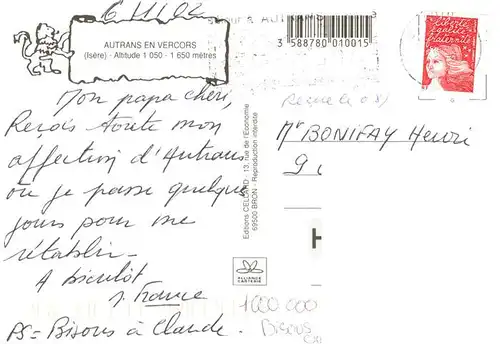 AUTRANS EN VERCORS
(Isère) - Altitude 1 050 - 1 650 mètres
Mon papa chéri,
Reçois toute mon
affection d'Autrans
où je passe quelques
jours pour me
rétablir.
A bientôt
France
PS = Bisous à Claude.
Editions CELLARD - 13, rue de l'Economie
69500 BRON - Reproduction interdite
ALLIANCE
CARTERIE
3 588780 010015
liberté
égalité
fraternité
Reçue le 08/
Mr BONIFAY Henri
H
1000 000
Bisous